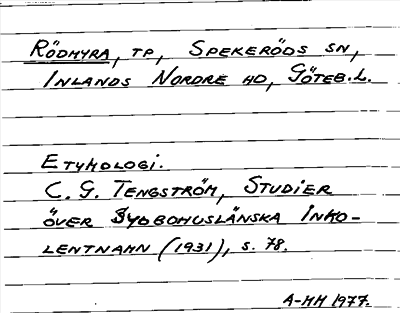 RÖDMYRA, TP, SPEKERÖDS SN,
INLANDS NORDRE HD, GÖTEB.L.
ETYMOLOGI.
C. G. TENGSTRÖM, STUDIER
ÖVER SYDBOHUSLÄNSKA INKO-
LENTNAMN (1931), S. 78.
A-MH 1977.